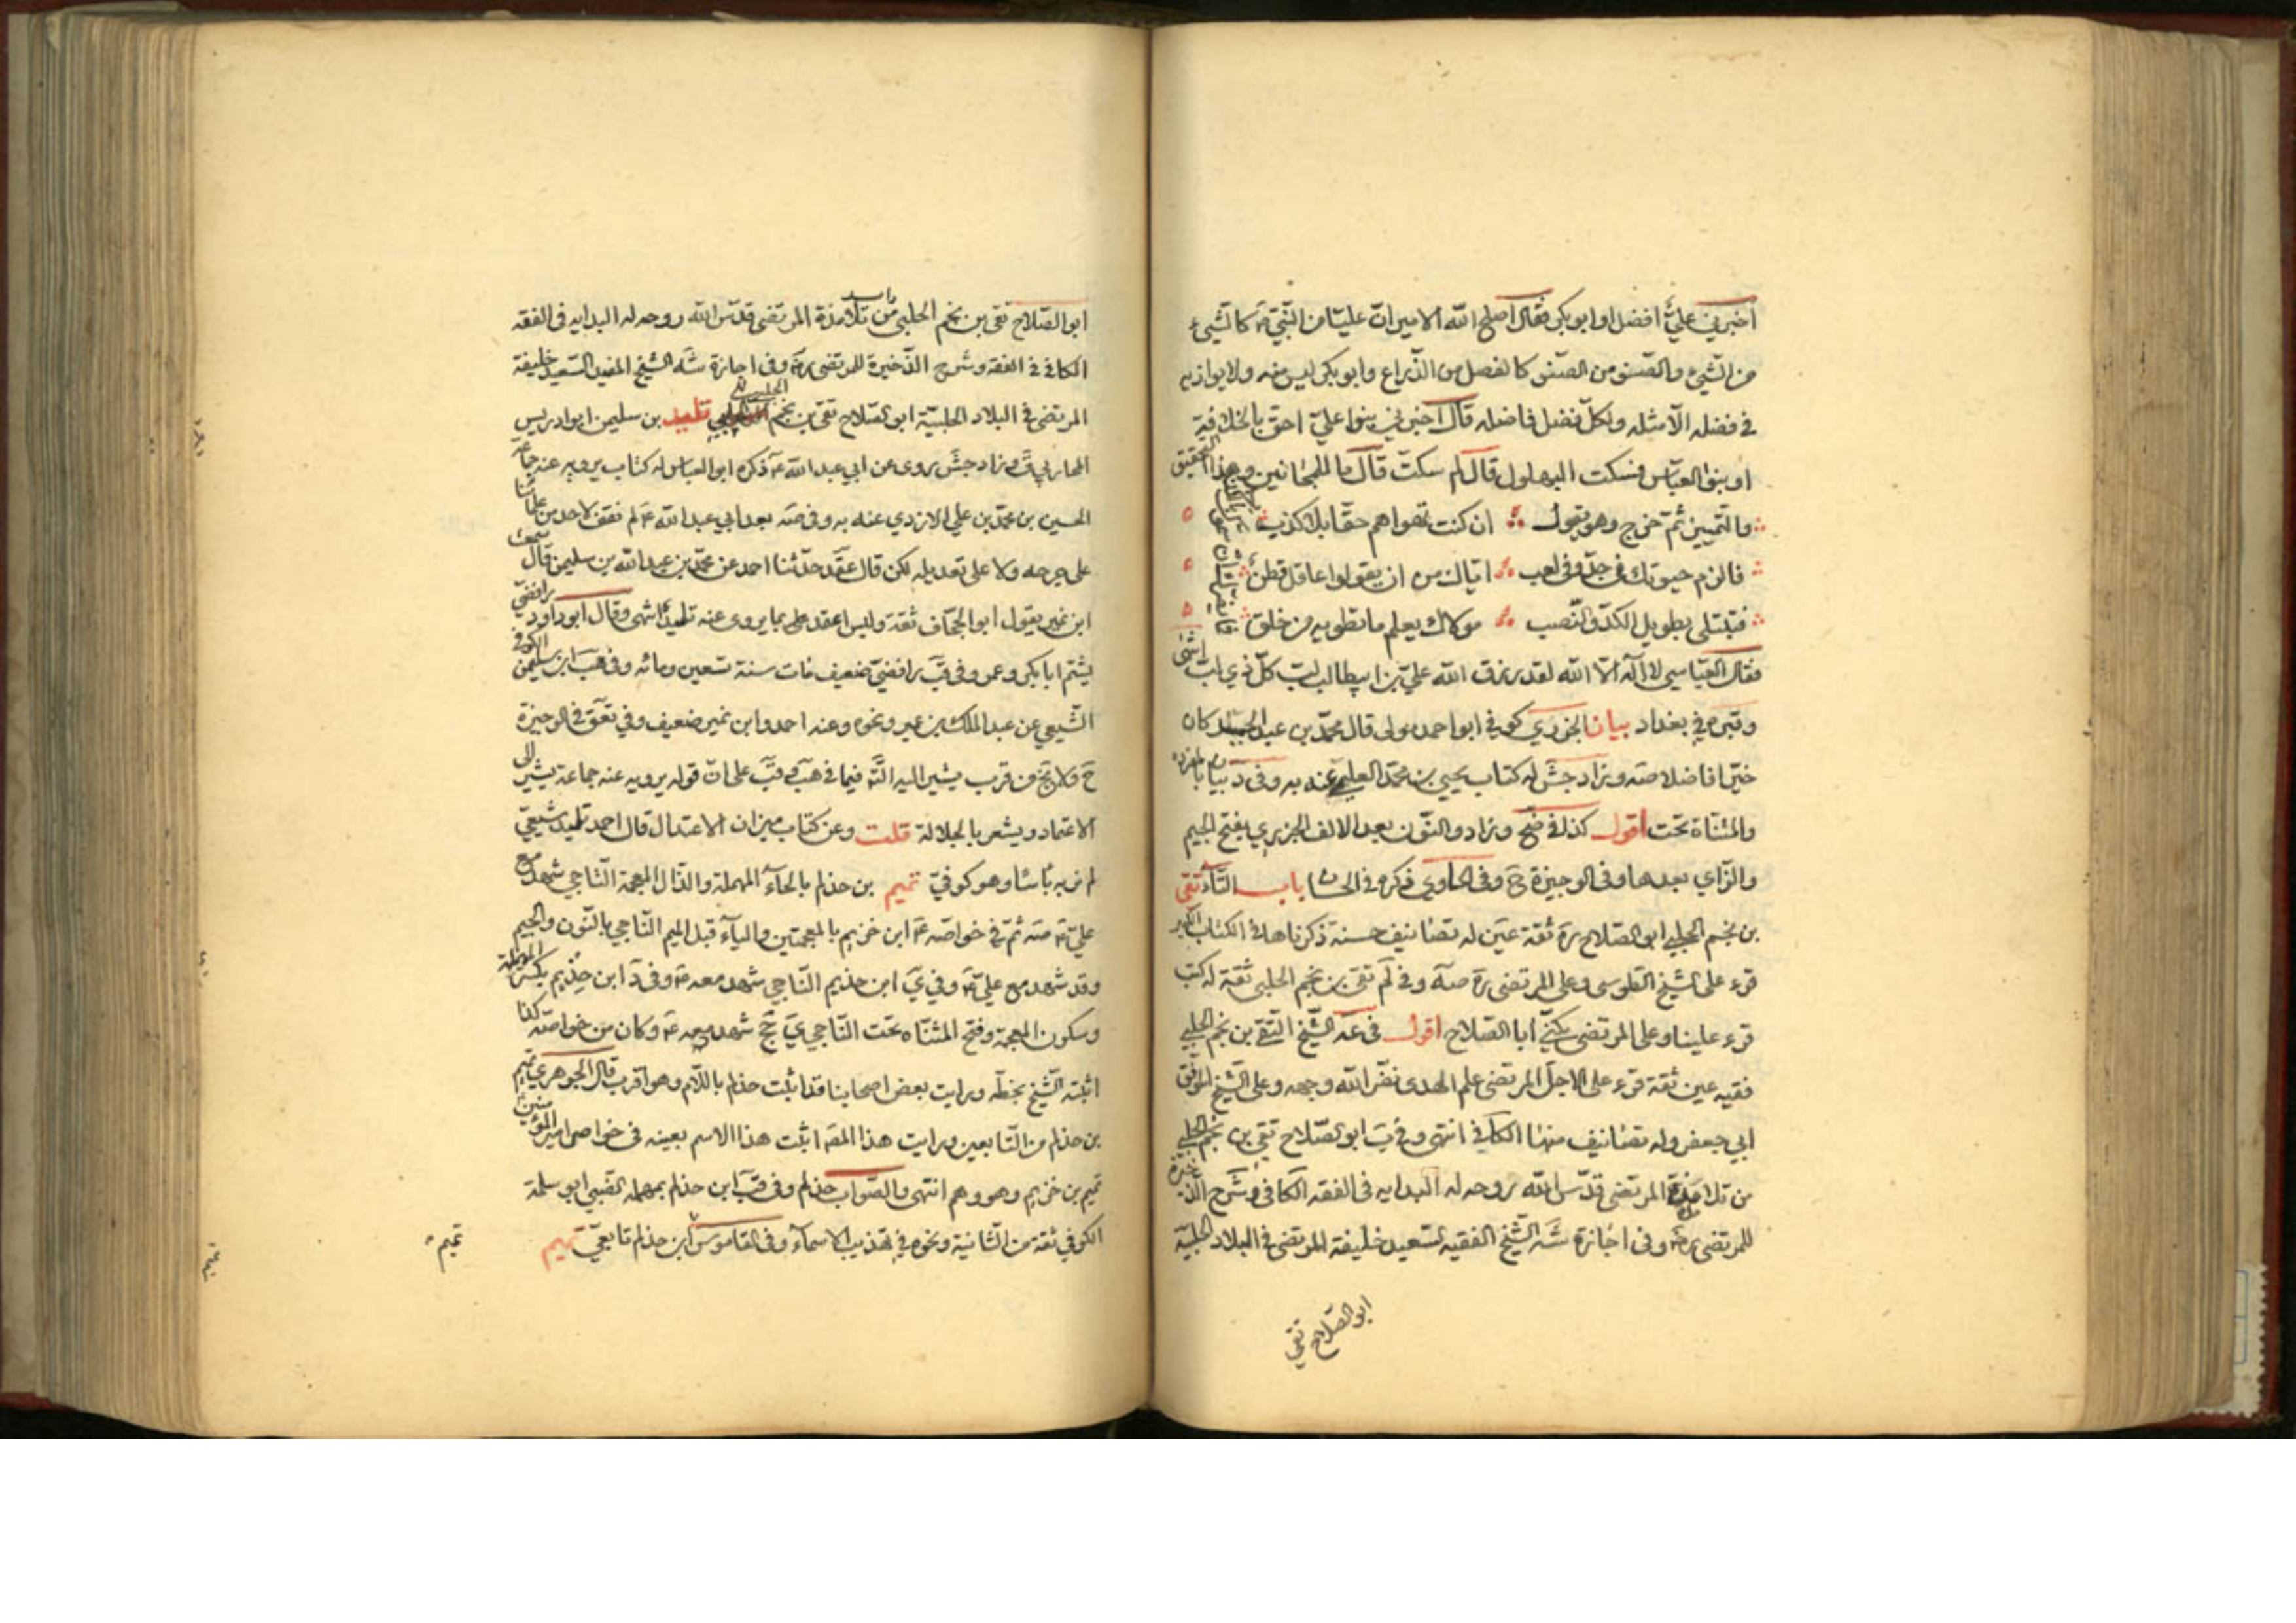 اخبرني عليّ افضل او ابو بكر فقال اصلح الله الامير انّ عليّا من النّبيّ ص كالشّيء
من الشّيء والصّنو من الصّنو كالفصل من الذّراع وابو بكر ليس منه ولا يوازيه
في فضله الّا مثله ولكلّ فضل فاضله قال اخبرني بنوا عليّ احق بالخلافة
او بنوا العبّاس فسكت البهلول قال لم سكتّ قال ما للمجانين وهذا التحقيق
والتّمييز ثمّ خرج وهو يقول ان كنت تهواهم حقّا بلا كذب
فالزم جنونك في جدّ وفي لعب ايّاك من ان يقولوا عاقل فطن
فتبتلى بطويل الكدّ والنّصب مولاك يعلم ما تطويه من خلق
فقال العبّاسي لا اله الّا الله لقد رزق الله عليّ بن ابيطالب لبّ كلّ ذي لبّ انتهى
وقبره في بغداد بيان الجزري كوفي ابو احمد مولى قال محمّد بن عبد الحميد كان
خيّرا فاضلا صه وزاد جش له كتاب يحيى بن محمّد العليمي عنه به وفي د بيان بالمفردة
والمثنّاة تحت اقول كذا في ضح وزاد والنّون بعد الالف الجزيري بفتح الجيم
والزّاي بعدها وفي الوجيزة ح وفي الحاوي ذكره في الحسان باب التّاء تقي
بن نجم الحلبي ابو الصّلاح ره ثقة عين له تصانيف حسنة ذكرناها في الكتاب الكبير
قرء على الشّيخ الطّوسي وعلى المرتضى ره صه وفي لم تقي بن نجم الحلبي ثقة له كتب
قرء علينا وعلى المرتضى يكنّى ابا الصّلاح اقول في عه الشّيخ التّقي بن نجم الحلبي
فقيه عين ثقة قرء على الاجلّ المرتضى علم الهدى نضّر الله وجهه وعلى الشّيخ الموفّق
ابي جعفر وله تصانيف منها الكافي انتهى وفي ب ابو الصّلاح تقي بن نجم الحلبي
من تلامذة المرتضى قدّس الله روحه له البدايه في الفقه الكافي وشرح الذخيرة
للمرتضى ره وفي اجازة شه الشّيخ الفقيه السّعيد خليفة المرتضى في البلاد الحلبيّة
ابو الصّلاح تقي
ابو الصّلاح تقي بن نجم الحلبي من تلامذة المرتضى قدّس الله روحه له البدايه في الفقه
الكافي في الفقه وشرح الذّخيرة للمرتضى ره وفي اجازة شه الشّيخ المفيد السّعيد خليفة
المرتضى في البلاد الحلبيّة ابو الصّلاح تقي بن نجم الحلبي تليد بن سليمن ابو ادريس
المحاربي ق وزاد جش روى عن ابي عبد الله ع ذكره ابو العباس له كتاب يرويه عنه جماعة
الحسين بن محمّد بن علي الازدي عنه به وفي صه بعد ابي عبد الله ع لم نقف لاحد من علمائنا
على جرحه ولا على تعديله لكن قال عقد حدّثنا احمد عن محمّد بن عبد الله بن سليمن قال سمعت
ابن نمير يقول ابو الجحّاف ثقة وليس اعتمد على ما يروى عنه تليد انتهى وقال ابو داود رافضيّ
يشتم ابا بكر وعمر وفي قب رافضيّ ضعيف مات سنة تسعين ومائه وفي هب ابن سليمن الكوفي
الشّيعي عن عبد الملك بن عمير ونحوه وعنه احمد وابن نمير ضعيف وفي تعق في الوجيزة
ح ولا يخ من قرب يشير اليه انّه فيما في هب وقب على انّ قوله يرويه عنه جماعة يشير الى
الاعتماد ويشعر بالجلالة قلت وعن كتاب ميزان الاعتدال قال احمد تليد شيعيّ
لم نر به باسا وهو كوفيّ تميم بن حذلم بالحاء المهملة والذّال المعجمة النّاجي شهد مع
عليّ ع صه ثمّ في خواصّه ع ابن خزيم بالمعجمتين والياء قبل الميم النّاجي بالنّون والجيم
وقد شهد مع عليّ ع وفي ي ابن حذيم النّاجي شهد معه ع وفي د ابن حذيم بكسر المهملة
وسكون المعجمة وفتح المثنّاه تحت النّاجي ي جخ شهد معه ع وكان من خواصّه كذا
اثبته الشّيخ بخطّه ورايت بعض اصحابنا قد اثبت حذلم باللّام وهو اقرب قال الجوهري تميم
بن حذلم من التّابعين ورايت هذا المصّ اثبت هذا الاسم بعينه في خواص امير المؤمنين
تميم بن خزيم وهو وهم انتهى والصّواب حذلم وفي قب ابن حذلم بمهمله الضّبي ابو سلمة
الكوفي ثقة من الثّانية ونحوه في تهذيب الاسماء وفي القاموس ابن حذلم تابعيّ تميم
تميم